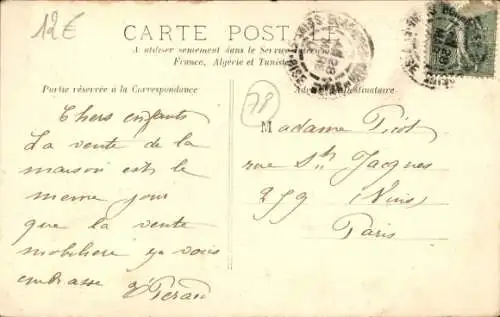 12€
CARTE POSTALE
A utiliser seulement dans le Service
France, Algérie et Tunisie
Partie réservée à la Correspondance
78
Chers enfants
La vente de la
maison est le
meme jour
que la vente
mobiliere
vous
embrasse
Madame Picot
rue St Jacques
279
Paris